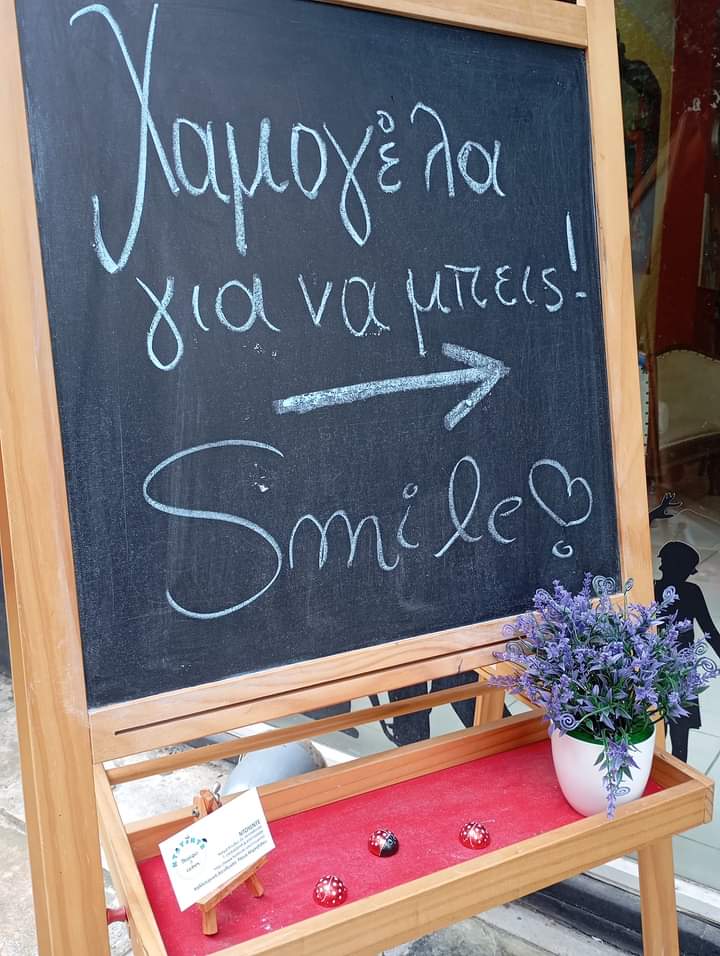 Χαμογέλα
για να μπεις!
Smile